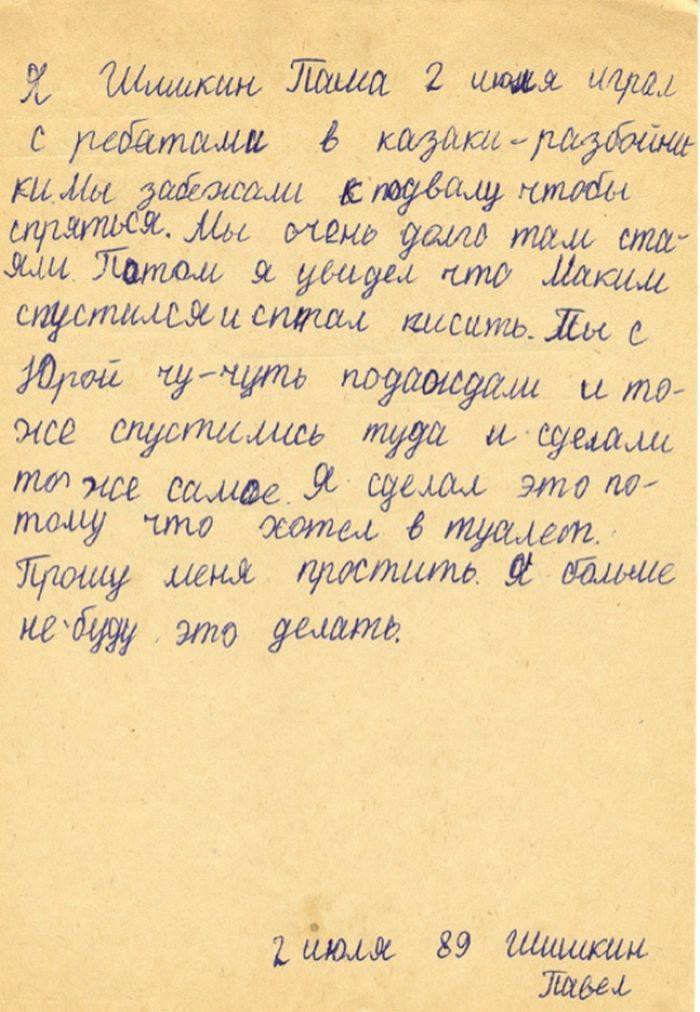 Я Шишкин Паша 2 июля играл
с ребятами в казаки-разбойни
ки. Мы забежали к подвалу чтобы
спряться. Мы очень долго там ста-
яли. Потом я увидел что Маким
спустился и сптал писить. Мы с
Юрой чу-чуть подаждали и то-
же спустились туда и сделали
то же самое. Я сделал это по-
тому что хотел в туалет.
Прошу меня простить. Я больше
не буду это делать.
2 июля 89 Шишкин
Павел